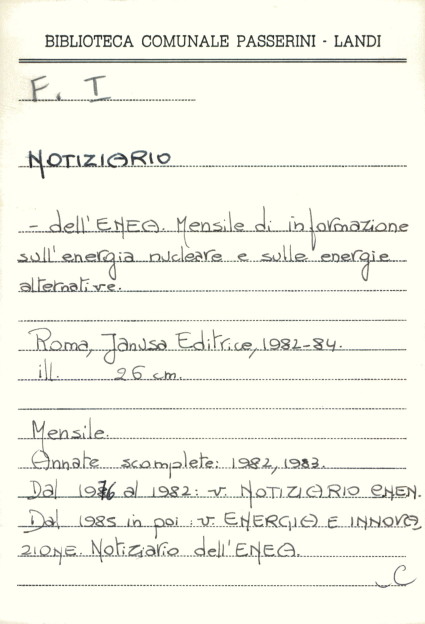 BIBLIOTECA COMUNALE PASSERINI - LANDI
F. I
NOTIZIARIO
- dell'ENEA. Mensile di informazione
sull'energia nucleare e sulle energie
alternative.
Roma, Janusa Editrice, 1982-84.
ill. 26 cm.
Mensile.
Annate scomplete: 1982, 1983.
Dal 1976 al 1982: v. NOTIZIARIO CNEN.
Dal 1985 in poi: v. ENERGIA E INNOVA
ZIONE. Notiziario dell'ENEA.
C